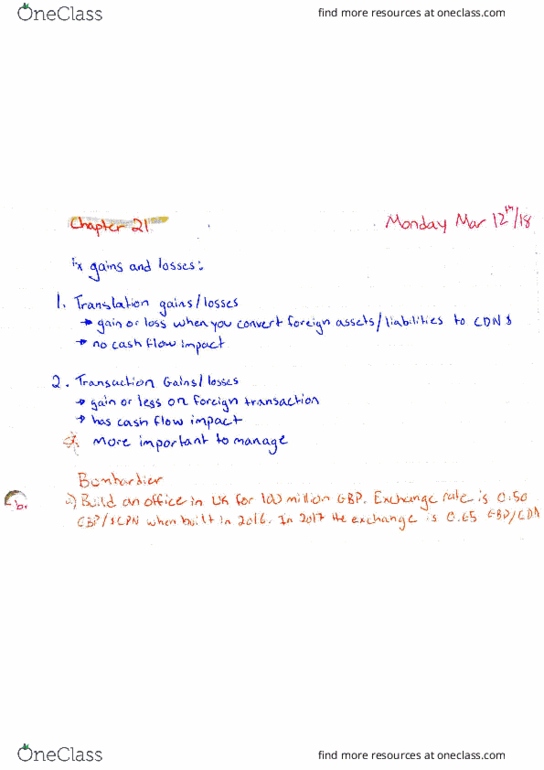 OneClass
find more resources at oneclass.com
Chapter 21
Monday Mar 12th/18
Fx gains and losses:
1. Translation gains/losses
→ gain or loss when you convert foreign assets/liabilities to CDN $
→ no cash flow impact
2. Transaction Gains/losses
→ gain or less on foreign transaction
→ has cash flow impact
more important to manage
Bombardier
b.
a) Build an office in UK for 100 million GBP. Exchange rate is 0.50
GBP/$CDN when built in 2016. In 2017 the exchange is 0.65 GBP/CDN
OneClass
find more resources at oneclass.com